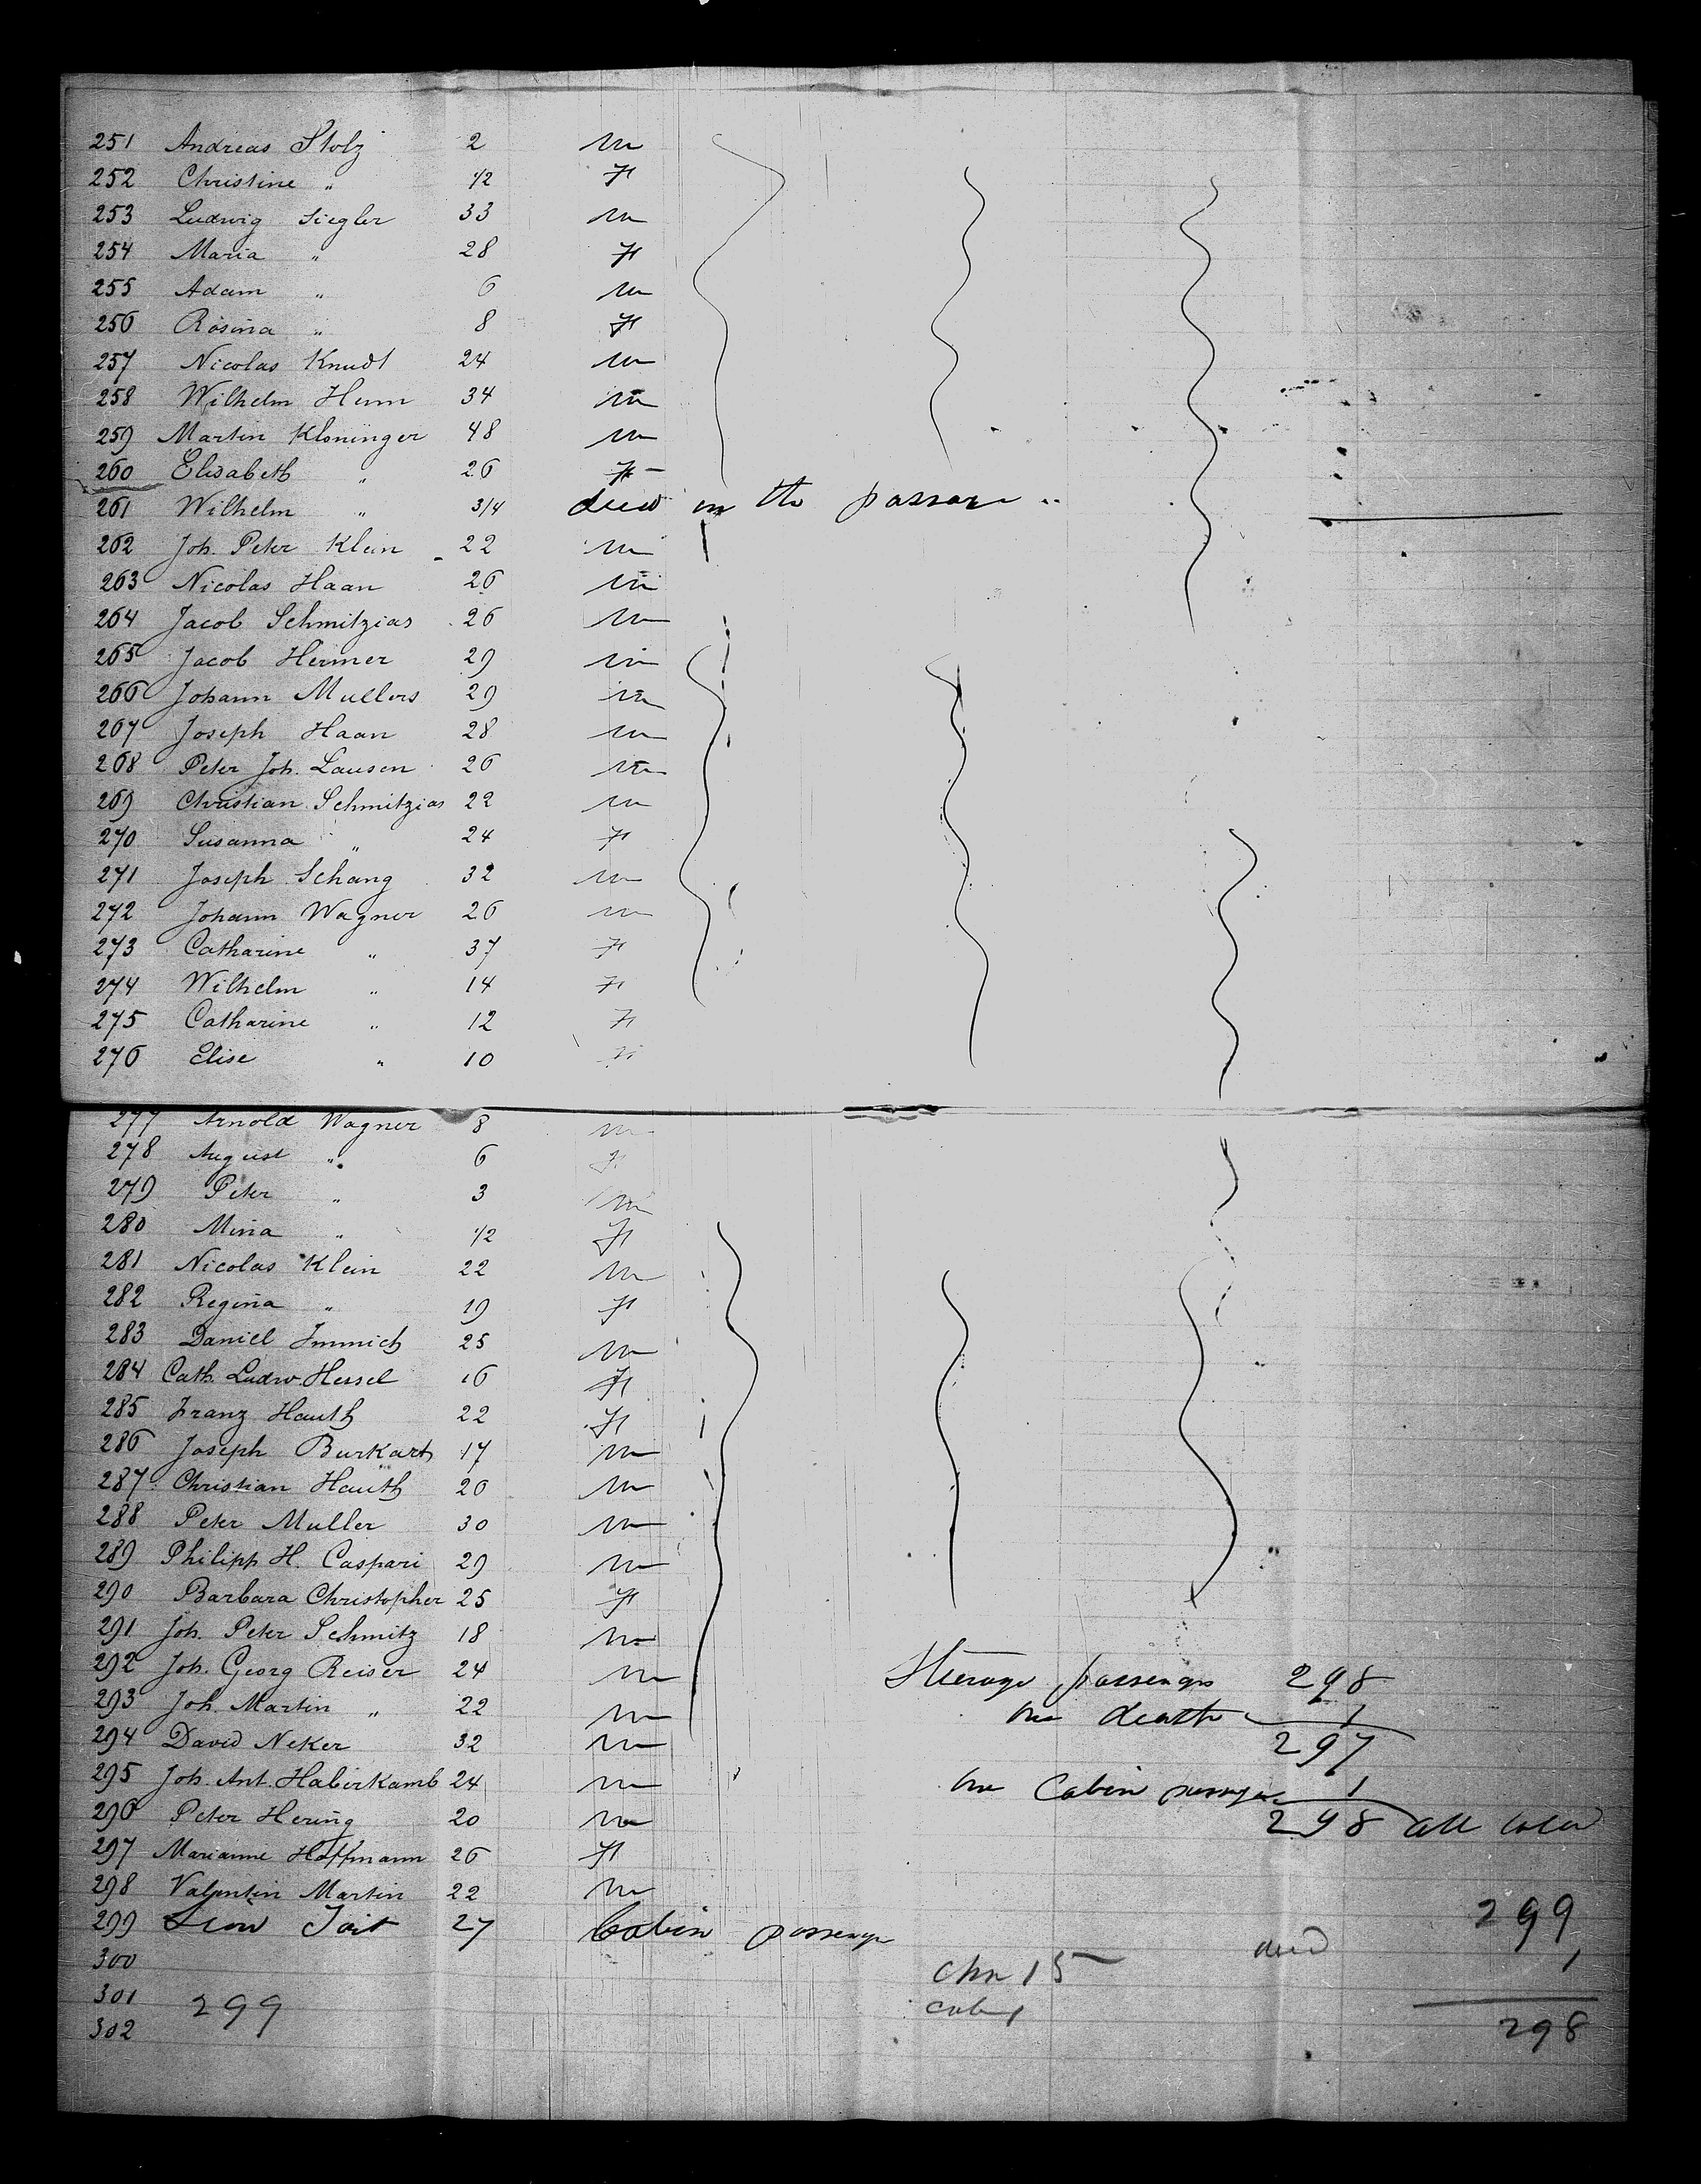 251 Andreas Stolz 2 m
252 Christine " 1/2 F
253 Ludwig Siegler 33 m
254 Maria " 28 F
255 Adam " 6 m
256 Rosina " 8 F
257 Nicolas Knudt 24 m
258 Wilhelm Hum 34 m
259 Martin Kloninger 48 m
260 Elisabeth " 26 F
261 Wilhelm " 3/4 died on the passage
262 Joh. Peter Klein 22 m
263 Nicolas Haan 26 m
264 Jacob Schmitzias 26 m
265 Jacob Hermer 29 m
266 Johann Mullers 29 m
267 Joseph Haan 28 m
268 Peter Joh. Lausen 26 m
269 Christian Schmitzias 22 m
270 Susanna " 24 F
271 Joseph Schang 32 m
272 Johann Wagner 26 m
273 Catharine " 37 F
274 Wilhelm " 14 F
275 Catharine " 12 F
276 Elise " 10 F
277 Arnold Wagner 8 m
278 August " 6 F
279 Peter " 3 m
280 Mina " 1/2 F
281 Nicolas Klein 22 m
282 Regina " 19 F
283 Daniel Immich 25 m
284 Cath. Ludw. Hessel 16 F
285 Franz Hauth 22 F
286 Joseph Burkart 17 m
287 Christian Hauth 20 m
288 Peter Muller 30 m
289 Philipp H. Caspari 29 m
290 Barbara Christopher 25 F
291 Joh. Peter Schmitz 18 m
292 Joh. Georg Reiser 24 m Steerage passengers 298
293 Joh. Martin " 22 m one death 1
294 David Neker 32 m 297
295 Joh. Ant. Haberkamb 24 m one Cabin passenger 1
296 Peter Hering 20 m 298 all told
297 Marianne Hoffmann 26 F
298 Valentin Martin 22 m
299 Tait 27 Cabin passenger 299
300 15 died 1
301 299 cab 1
302 298